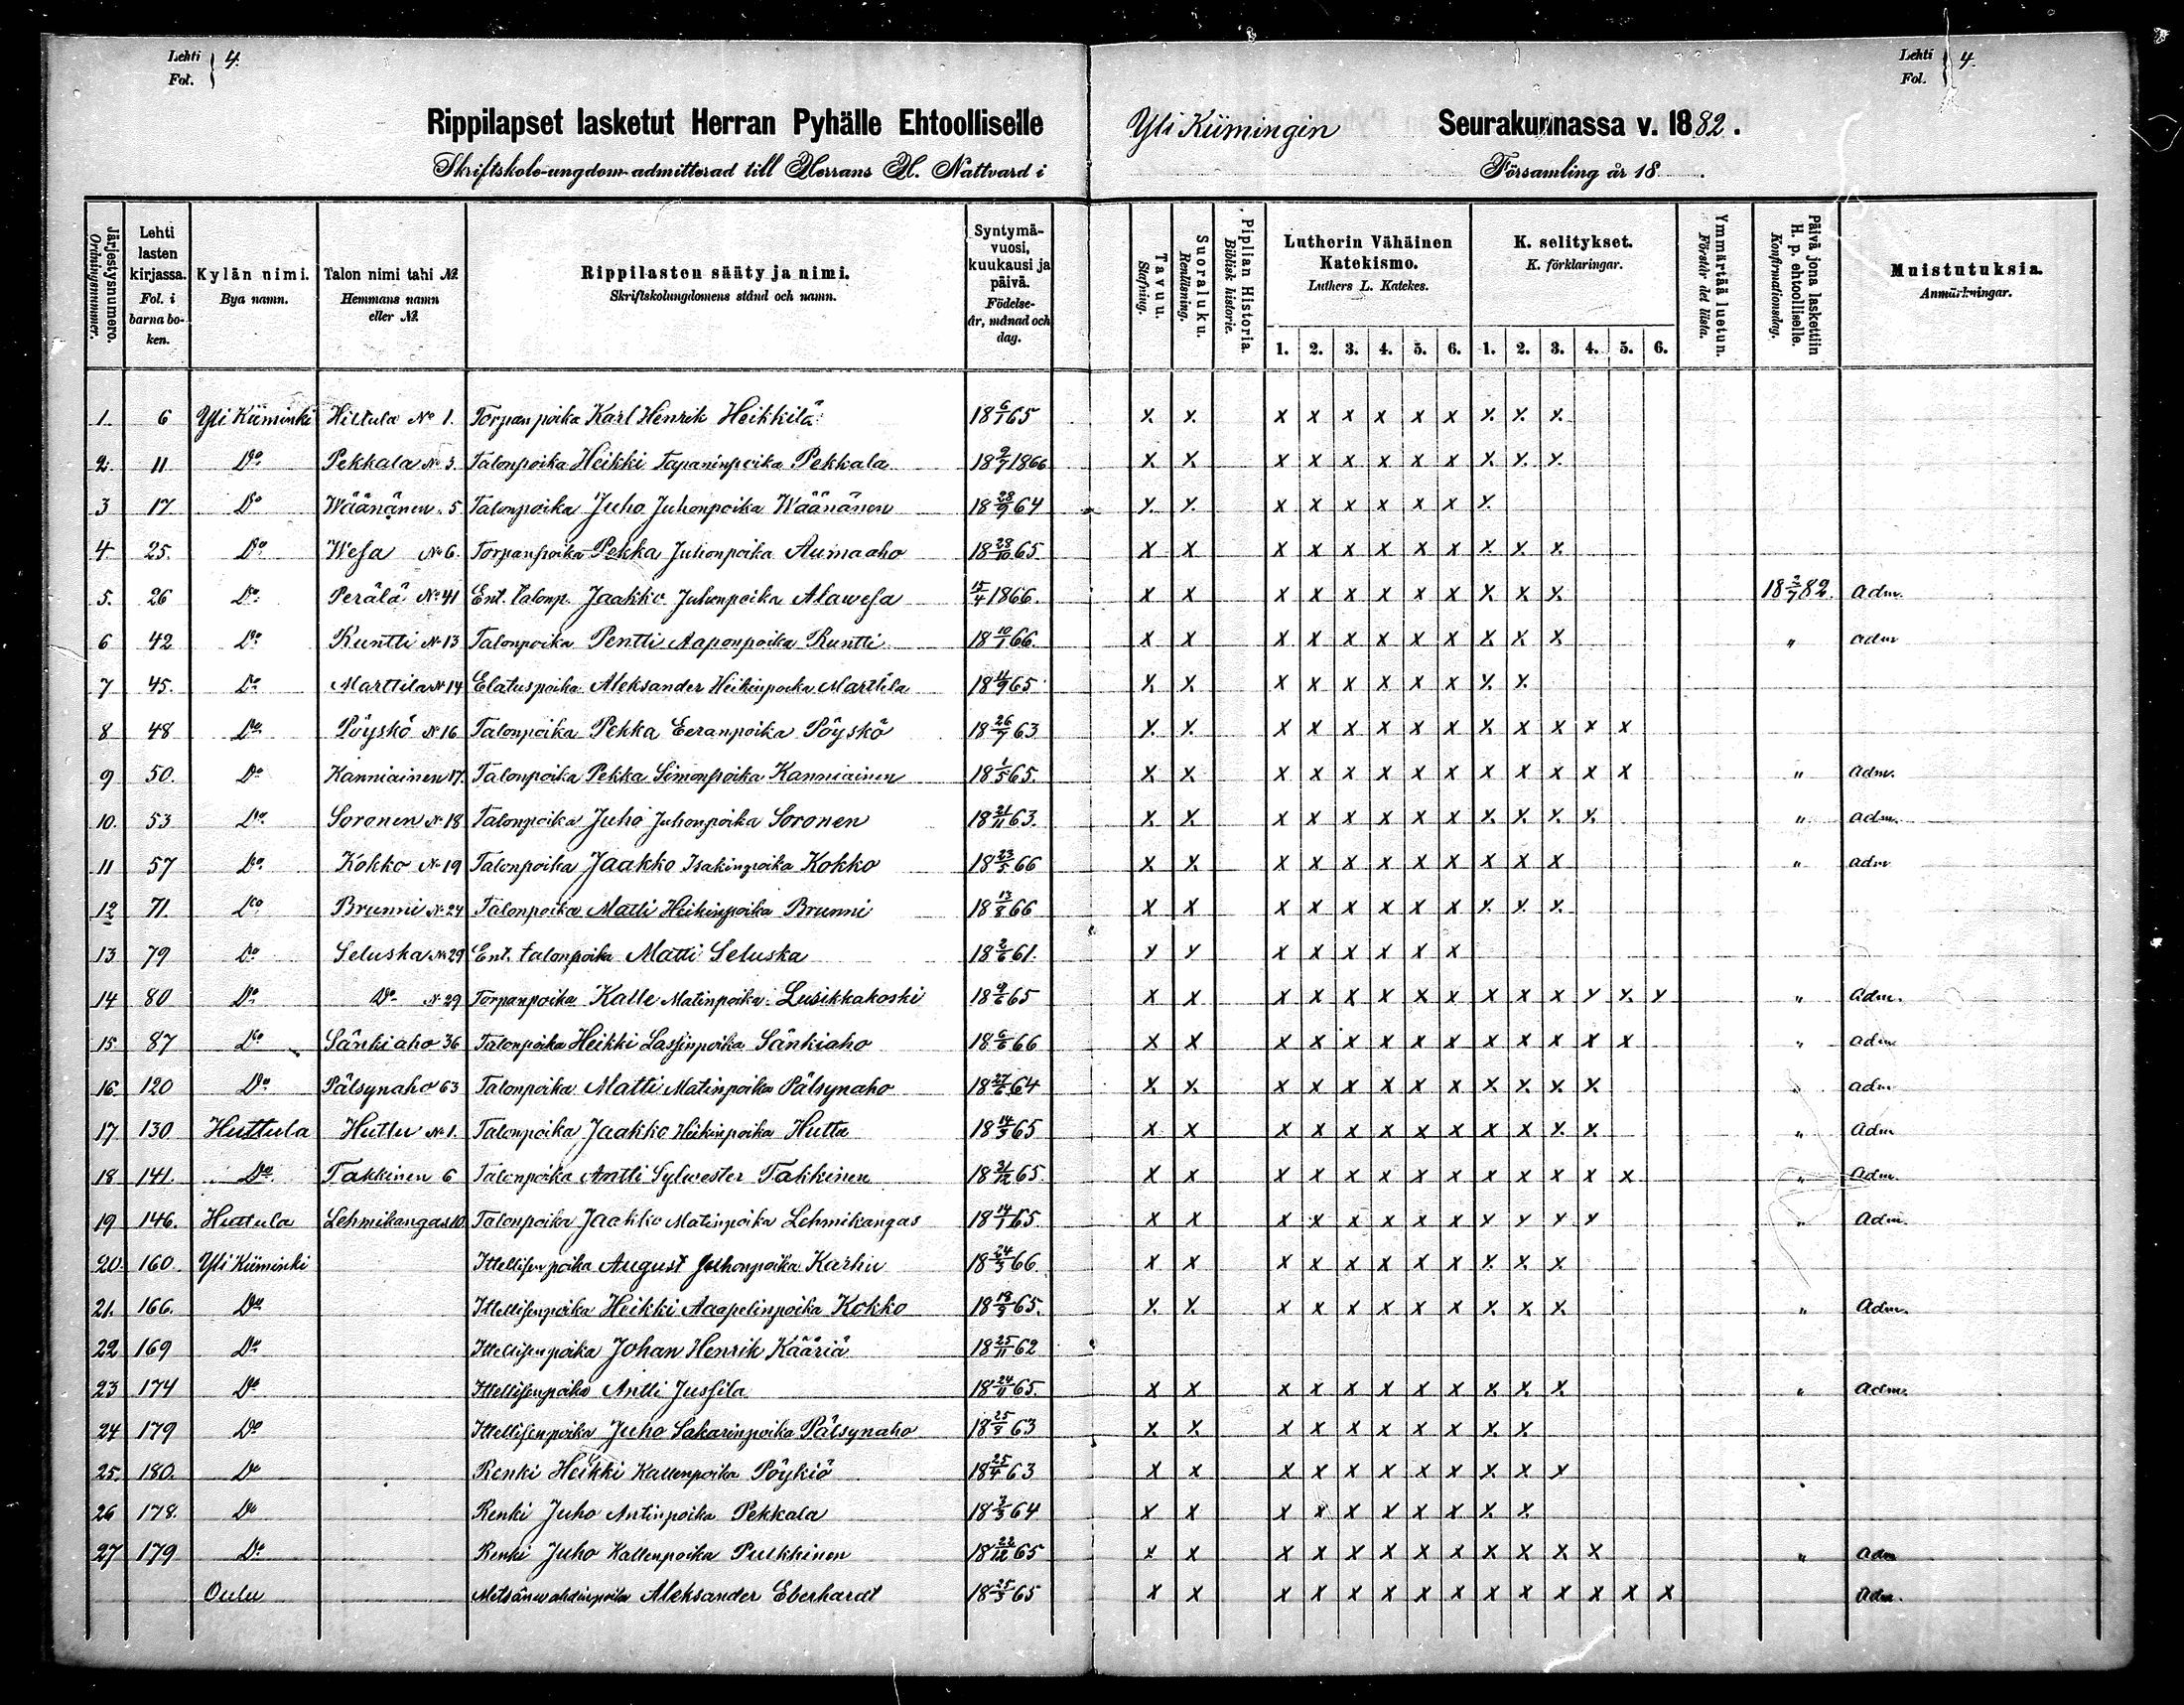 Lehti Fol. } 4.
Lehti Fol. } 4.
Rippilapset lasketut Herran Pyhälle Ehtoolliselle Yli Kiimingin Seurakunnassa v. 1882.
Skriftskole-ungdom admitterad till Herrans H. Nattvard i Församling år 18 .
Järjestysnumero. Ordningsnummer.
Lehti lasten kirjassa. Fol. i barnaboken.
Kylän nimi. Bya namn.
Talon nimi tahi №. Hemmans namn eller №.
Rippilasten sääty ja nimi. Skriftskolungdomens stånd och namn.
Syntymävuosi, kuukausi ja päivä. Födelseår, månad och dag.
Tavuu. Stafning.
Suoraluku. Renläsning.
Piplian Historia. Biblisk historie.
Lutherin Vähäinen Katekismo. Luthers L. Katekes. 1. 2. 3. 4. 5. 6.
K. selitykset. K. förklaringar. 1. 2. 3. 4. 5. 6.
Ymmärtää luetun. Förstår det lästa.
Päivä jona laskettiin H. p. ehtoolliselle. Konfirmationsdag.
Muistutuksia. Anmärkningar.
1. 6 Yli Kiiminki Hiltula No 1. Torpanpoika Karl Henrik Heikkilä 18 6/1 65 x x x x x x x x x x x
2. 11 Do Pekkala No 3. Talonpoika Heikki Tapaninpoika Pekkala 18 9/7 1866 x x x x x x x x x x x
3 17 Do Wäänänen 5 Talonpoika Juho Juhonpoika Wäänänen 18 28/9 64 x x x x x x x x x
4 25. Do Wesa No 6. Torpanpoika Pekka Juhonpoika Aumaaho 18 28/10 65 x x x x x x x x x x x
5. 26 Do Perälä No 41 Ent. talonp. Jaakko Juhonpoika Alawesa 15/4 1866. x x x x x x x x x x x 18 2/7 82. Adm.
6 42 Do Runtti No 13 Talonpoika Pentti Aaponpoika Runtti 18 10/1 66. x x x x x x x x x x x " adm
7 45. Do Marttila No 14 Elatuspoika Aleksander Heikinpoika Marttila 18 11/9 65 x x x x x x x x x x
8 48 Do Pöyskö No 16 Talonpoika Pekka Eeranpoika Pöyskö 18 26/7 63 x x x x x x x x x x x x x
9 50. Do Kanniainen 17. Talonpoika Pekka Simonpoika Kanniainen 18 1/5 65. x x x x x x x x x x x x x " Adm.
10. 53 Do Soronen No 18 Talonpoika Juho Juhonpoika Soronen 18 21/11 63. x x x x x x x x x x x x " adm.
11 57 Do Kokko No 19 Talonpoika Jaakko Isakinpoika Kokko 18 23/5 66 x x x x x x x x x x x " adm
12 71. Do Brunni No 24 Talonpoika Matti Heikinpoika Brunni 18 13/8 66 x x x x x x x x x x x
13 79 Do Seluska No 29 Ent. talonpoika Matti Seluska 18 2/6 61. x x x x x x x x
14 80 Do Do No 29 Torpanpoika Kalle Matinpoika Lusikkakoski 18 9/6 65 x x x x x x x x x x x x x x " Adm.
15 87 Do Sänkiaho 36 Talonpoika Heikki Lassinpoika Sänkiaho 18 6/6 66 x x x x x x x x x x x x x " adm
16. 120 Do Pälsynaho 63 Talonpoika Matti Matinpoika Pälsynaho 18 27/6 64 x x x x x x x x x x x x " adm
17 130 Huttula Huttu No 1. Talonpoika Jaakko Heikinpoika Hutta 18 14/3 65 x x x x x x x x x x x x " Adm
18 141. Do Takkinen 6 Talonpoika Antti Sylwester Takkinen 18 31/12 65. x x x x x x x x x x x x x " Adm.
19 146. Huttula Lehmikangas 10. Talonpoika Jaakko Matinpoika Lehmikangas 18 14/1 65. x x x x x x x x x x x x " Adm.
20. 160. Yli Kiiminki Itellisenpoika August Juhonpoika Karhu 18 24/3 66. x x x x x x x x x x x
21. 166. Do Itellisenpoika Heikki Aapelinpoika Kokko 18 18/9 65. x x x x x x x x x x x " Adm.
22 169 Do Itellisenpoika Johan Henrik Kääriä 18 25/11 62
23 174 Do Itellisenpoika Antti Jussila 18 24/11 65. x x x x x x x x x x x " Adm.
24 179 Do Itellisenpoika Juho Sakarinpoika Pälsynaho 18 25/8 63 x x x x x x x x x x
25. 180. Do Renki Heikki Kallenpoika Pöykiö 18 25/4 63 x x x x x x x x x x x
26 178. Do Renki Juho Antinpoika Pekkala 18 3/3 64 x x x x x x x x x x
27 179 Do Renki Juho Kallenpoika Pulkkinen 18 22/12 65 x x x x x x x x x x x x " Adm
Oulu Metsänwahdinpoika Aleksander Eberhardt 18 25/3 65 x x x x x x x x x x x x x x Adm.